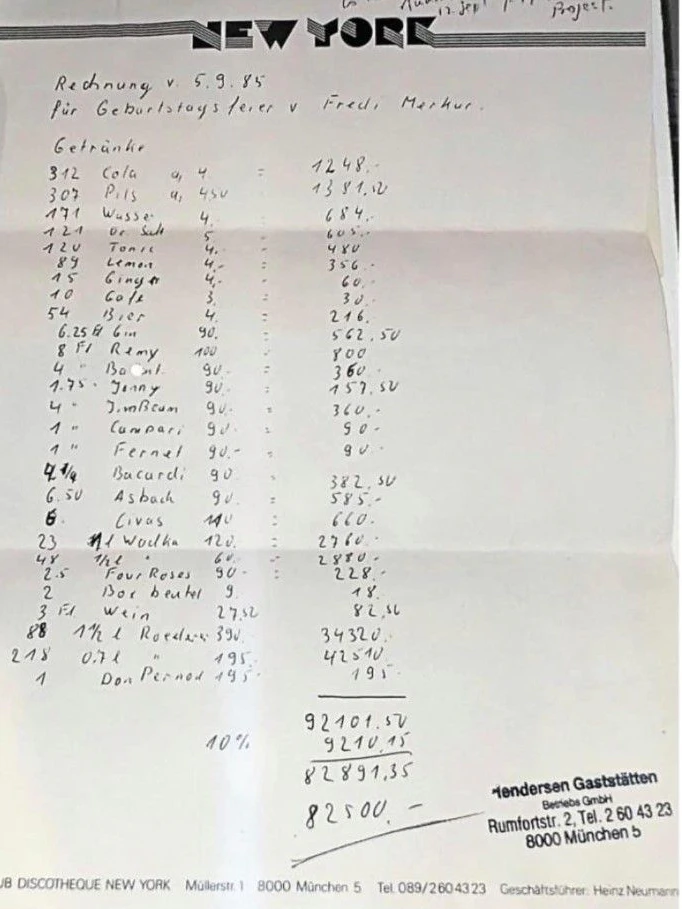 12. Sept
Project.
NEW YORK
Rechnung v. 5.9.85
für Geburtstagsfeier v Fredi Merkur.
Getränke
312 Cola a, 4. = 1248.-
307 Pils a, 450 1381,50
171 Wasser 4. 684.-
121 Or. Saft 5. 605.-
120 Tonic 4.- 480
89 Lemon 4.- = 356.-
15 Ginger 4.- = 60.-
10 Cafe 3. = 30.-
54 Bier 4. = 216.
6.25 Fl Gin 90. = 562.50
8 Fl Remy 100 - 800
4 " 90.- = 360.-
1.75 " Jonny 90.- = 157.50
4 " JimBeam 90.- = 360.-
1 " Campari 90.- = 90-
1 " Fernet 90.- = 90.-
4 1/4 Bacardi 90 382.50
6.50 Asbach 90. = 585.-
6. Civas 110 = 660.
23 1l Wodka 120. = 2760.-
48 1/2l " 60.- = 2880.-
2.5 Four Roses 90- = 228.-
2 Box beutel 9. 18.
3 Fl Wein 27,52 82,56
88 1 1/2 l 390.- 34320.-
218 0.7l " 195.- 42510
1 Don Pernod 195.- 195.-
92101,50
10% 9210,15
82891,35
82500.-
Hendersen Gaststätten
Betriebs GmbH
Rumfortstr. 2, Tel. 2 60 43 23
8000 München 5
UB DISCOTHEQUE NEW YORK Müllerstr. 1 8000 München 5 Tel. 089/2604323 Geschäftsführer: Heinz Neumann